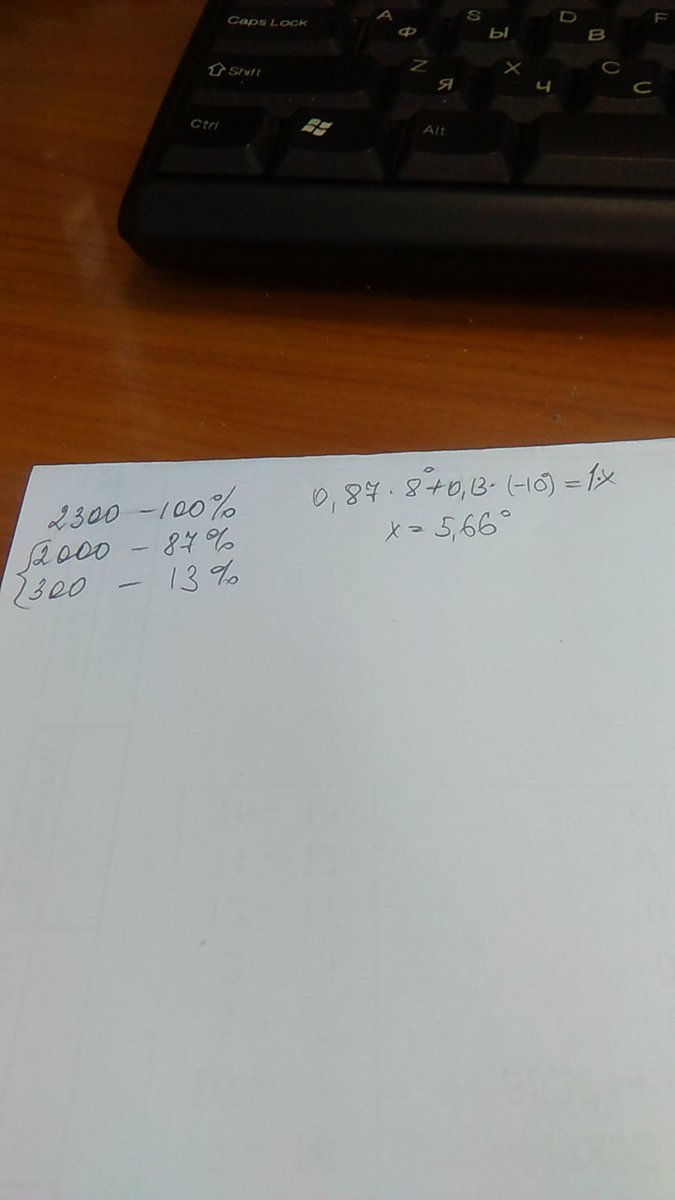 Caps Lock A Ф S Ы D В F
Shift Z Я X Ч C С
Ctrl Alt
2300 - 100%
2000 - 87%
300 - 13%
0,87 · 8° + 0,13 · (-10°) = 1·x
x = 5,66°